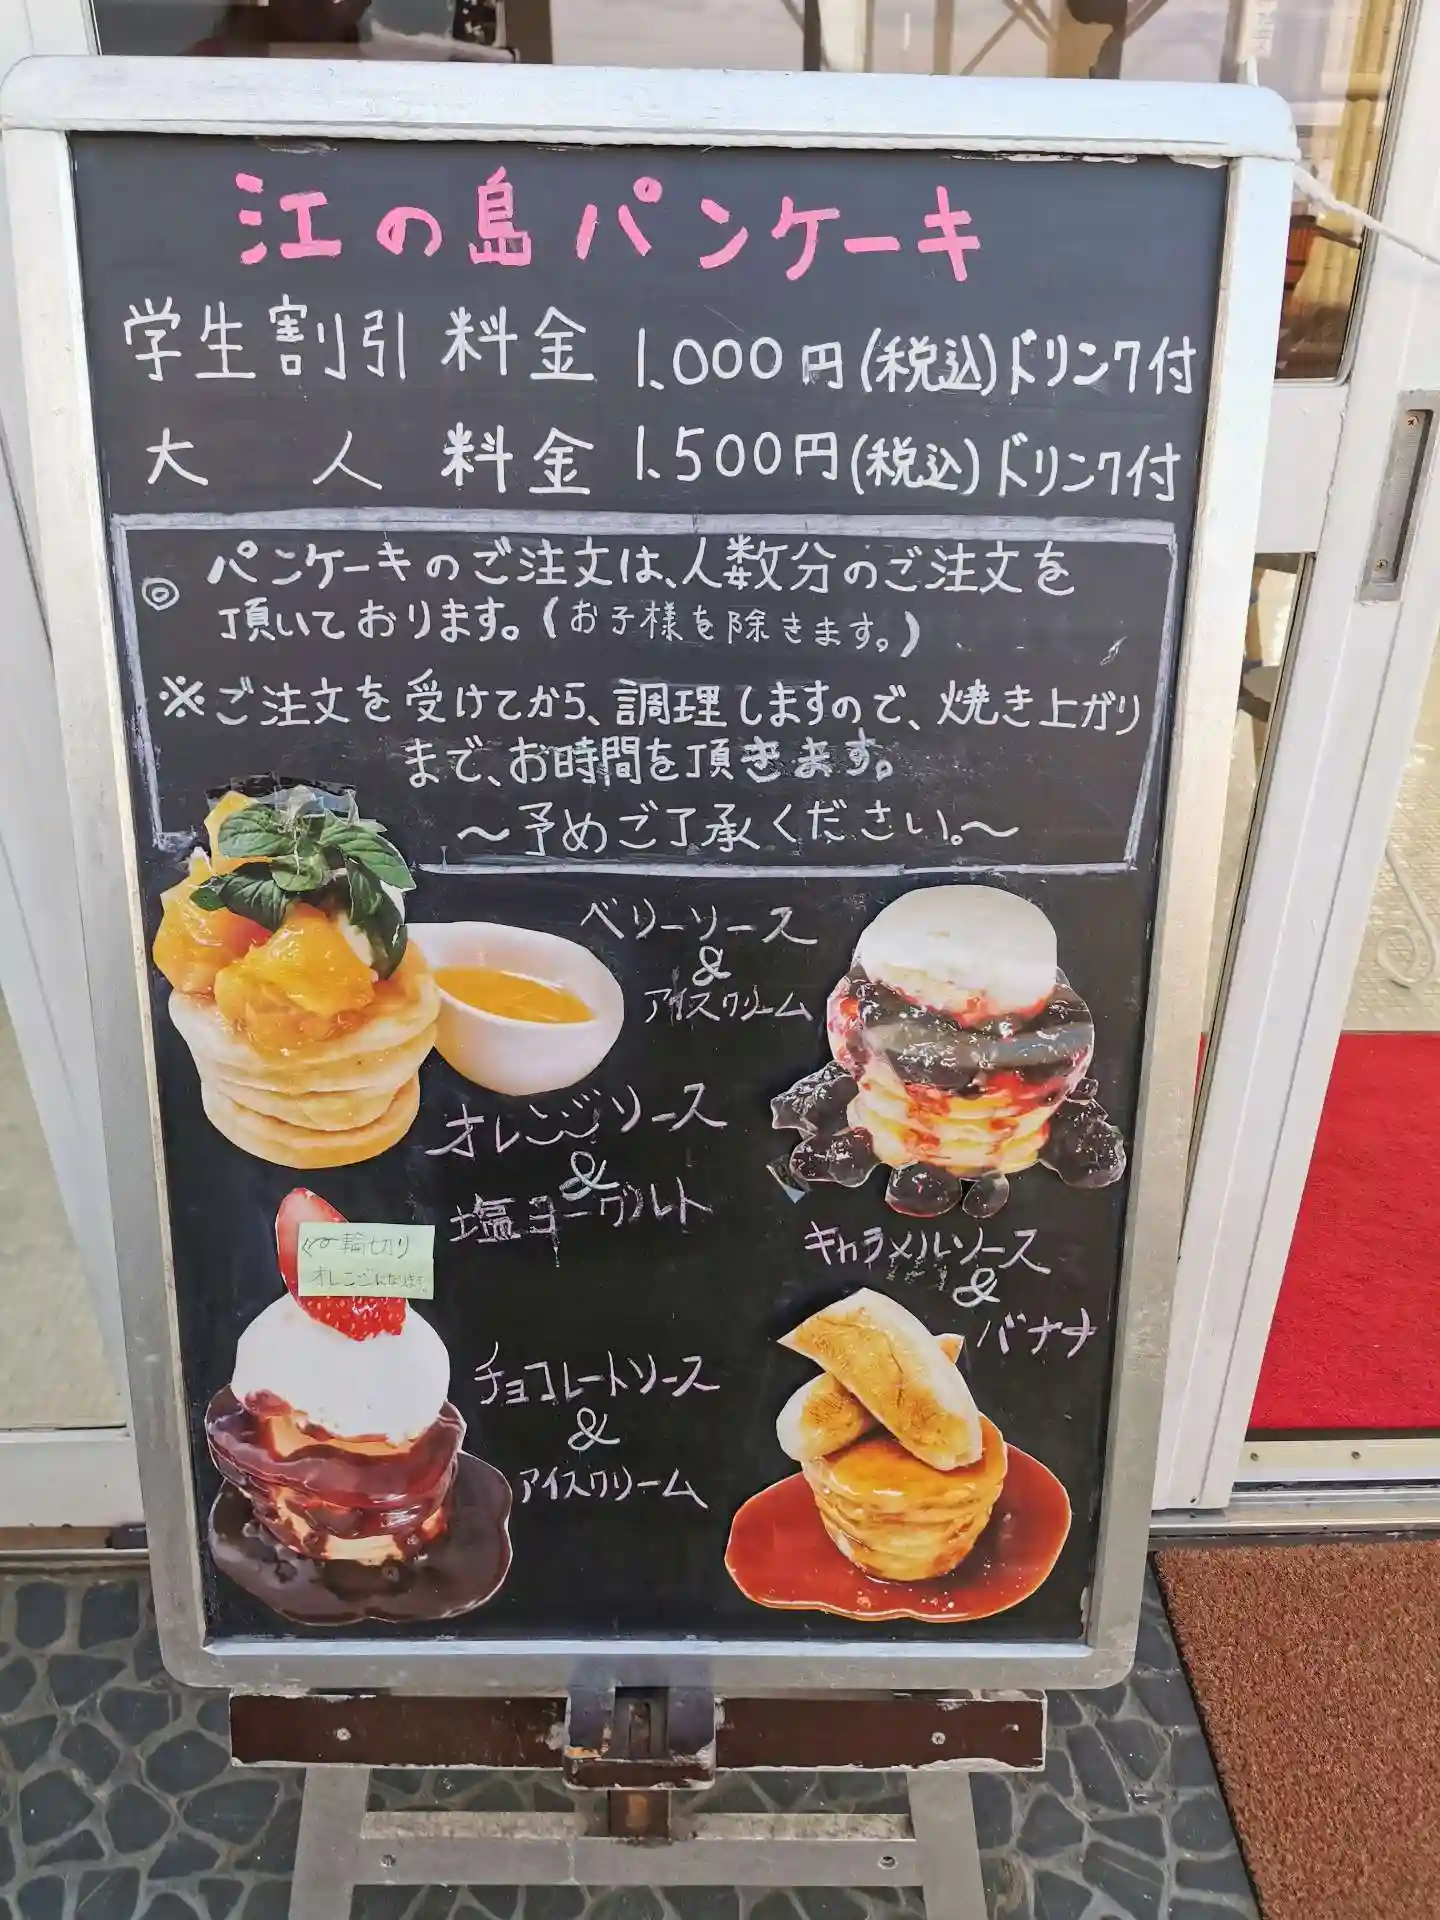 江の島パンケーキ
学生割引料金 1.000円(税込)ドリンク付
大人料金 1.500円(税込)ドリンク付
◎ パンケーキのご注文は、人数分のご注文を
頂いております。(お子様を除きます。)
※ご注文を受けてから、調理しますので、焼き上がり
まで、お時間を頂きます。
〜予めご了承ください。〜
ベリーソース
&
アイスクリーム
オレンジソース
&
塩ヨーグルト
輪切り
オレンジになります。
キャラメルソース
&
バナナ
チョコレートソース
&
アイスクリーム